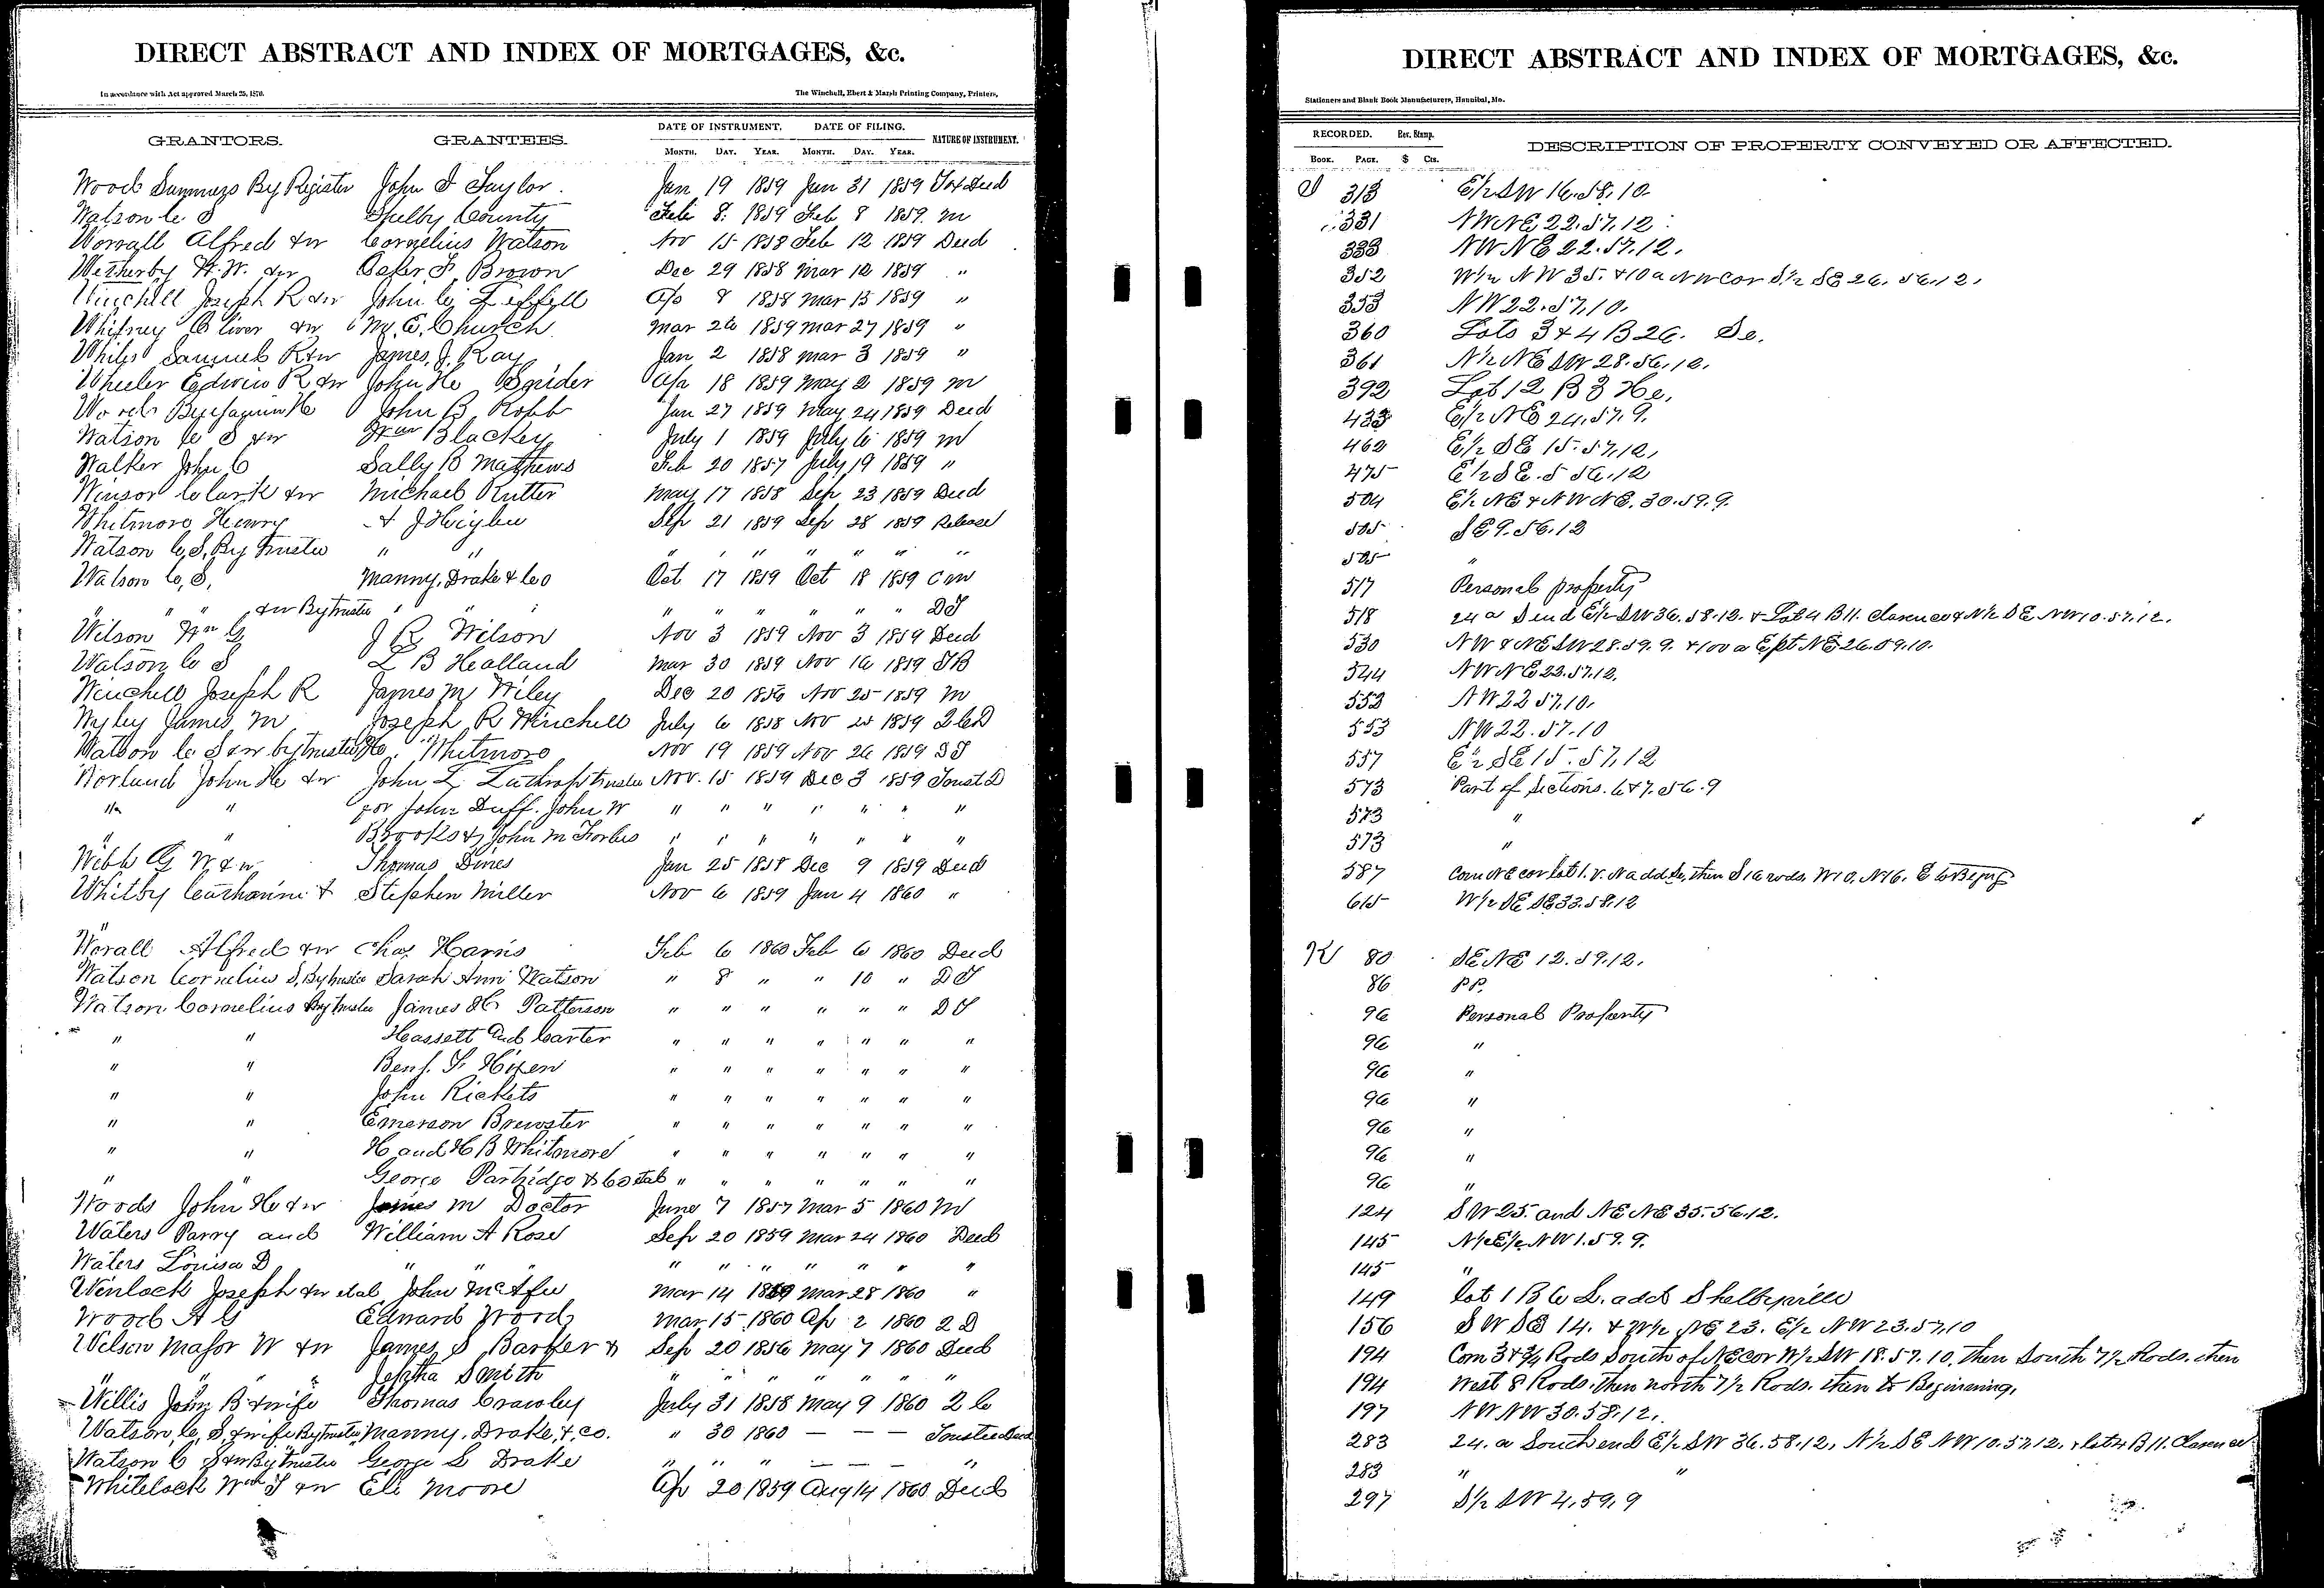 DIRECT ABSTRACT AND INDEX OF MORTGAGES, &c.
In accordance with Act approved March 25, 1870. The Winchell, Ebert & Marsh Printing Company, Printers,
GRANTORS. GRANTEES. DATE OF INSTRUMENT. DATE OF FILING. NATURE OF INSTRUMENT.
MONTH. DAY. YEAR. MONTH. DAY. YEAR.
Wood Summers By Register John S Taylor. Jan 19 1859 Jan 31 1859 Tax Deed
Watson C S Shelby County Feb 8. 1859 Feb 8 1859. M
Worrall Alfred & w Cornelius Watson Nov 15 1858 Feb 12 1859 Deed
Wetherby H. W. & w F. Brown Dec 29 1858 Mar 12 1859 "
Winchell Joseph R & w John C. Ap 8 1858 Mar 15 1859 "
Whitney Oliver & w M. E. Church Mar 26 1859 Mar 27 1859 "
Whiles Samuel R & w James J. Ray Jan 2 1858 Mar 3 1859 "
Wheeler Edwin R & w John H Snider Apr 18 1859 May 2 1859 M
Wood Benjamin H John B Robb Jan 27 1859 May 24 1859 Deed
Watson C S & w Wm Blackey July 1 1859 July 6 1859 M
Walker John C Sally B Mathews Feb 20 1857 July 19 1859 "
Winsor Clark & w Michael Rutter May 17 1858 Sep 23 1859 Deed
Whitmore Henry A J Higbee Sep 21 1859 Sep 28 1859 Release
Watson C, S, By Trustee " " " " " " " " "
Watson C, S, Manny, Drake & Co Oct 17 1859 Oct 18 1859 C M
" " " & w By Trustee " " " " " " " " " DT
Wilson Wm G J R Wilson Nov 3 1859 Nov 3 1859 Deed
Watson C S L B Holland Mar 30 1859 Nov 16 1859 TB
Winchell Joseph R James M Wiley Dec 20 1856 Nov 25 1859 M
Wyley James M Joseph R Winchell July 6 1858 Nov 25 1859 2CD
Watson C S & w by trustee H. Whitmore Nov 19 1859 Nov 26 1859 DT
Worland John H & w John L. Lathrop trustee Nov. 15 1859 Dec 3 1859 Trust D
" " for John Duff. John W " " " " " " "
" " Brooks & John M Forbes " " " " " " "
Webb G W & w Thomas Dines Jan 25 1858 Dec 9 1859 Deed
Whitby Catharine & Stephen Miller Nov 6 1859 Jan 4 1860 "
Worall Alfred & w Chas. Harris Feb 6 1860 Feb 6 1860 Deed
Watson Cornelius S, By trustee Sarah Ann Watson " 8 " " 10 " DT
Watson Cornelius By trustee James H. Patterson " " " " " " DT
" " Hassett and Carter " " " " " " "
" " Benj. F. Hixen " " " " " " "
" " John Rickets " " " " " " "
" " Emerson Brewster " " " " " " "
" " H and H B Whitmore " " " " " " "
" " George Partridge & Co etal " " " " " " "
Woods John H & w James M Doctor June 7 1857 Mar 5 1860 M
Waters Parry and William A Rose Sep 20 1859 Mar 24 1860 Deed
Waters Louisa D " " " " " " " " "
Winlock Joseph & w etal John McAfee Mar 14 1859 Mar 28 1860 "
Wood A G Edward Wood Mar 15 1860 Ap 2 1860 2 D
Wilson Major W & w James S Barker & Sep 20 1856 May 7 1860 Deed
" " " " Jeptha Smith " " " " " " "
Willis John B & wife Thomas Crawley July 31 1858 May 9 1860 2 C
Watson, C, S, & wife By trustee Manny, Drake, & co. " 30 1860 — — — Trustee Deed
Watson C S & w By trustee George S Drake " " " — — — "
Whitelock Wm T & w Eli Moore Ap 20 1859 Aug 14 1860 Deed
DIRECT ABSTRACT AND INDEX OF MORTGAGES, &c.
Stationers and Blank Book Manufacturers, Hannibal, Mo.
RECORDED. Rev. Stamp. DESCRIPTION OF PROPERTY CONVEYED OR AFFECTED.
BOOK. PAGE. $ Cts.
J 313 E½ SW 16.58.10.
" 331 NW NE 22.57.12.
333 NW NE 22.57.12.
352 W½ NW 35. & 10 a NW cor S½ SE 26. 56.12.
353 NW 22.57.10.
360 Lots 3 & 4 B 26. Se.
361 N½ NE SW 28.56.10.
392 Lot 12 B 3 He.
433 E½ NE 24.57.9.
462 E½ SE 15.57.12,
475 E½ SE. 5 56.12
504 E½ NE & NW NE. 30.59.9.
505 SE 9.56.12
505 "
517 Personal property
518 24 a S end E½ SW 36.58.12. & Lot 4 B 11. Clarence & N½ SE NW 10.57.12.
530 NW & NE SW 28.59.9. & 100 a E pt NE 26.59.10.
544 NW NE 22.57.12.
553 NW 22 57.10.
553 NW 22.57.10
557 E½ SE 15.57.12
573 Part of Sections. 6 & 7.56.9
573 "
573 "
587 Com NE cor lot 1. V. N add Se, then S 16 rods, W 10, N 16. E to Begng
615 W½ SE SE 33.58.12
K 80 SE NE 12.59.12.
86 P P.
96 Personal Property
96 "
96 "
96 "
96 "
96 "
96 "
124 SW 25. and NE NE 35.56.12.
145 N½ E½ NW 1.59.9.
145 "
149 Lot 1 B 6 L. add Shelbyville
156 SW SE 14. & W½ NE 23. E½ NW 23.57.10
194 Com 3 & ¾ Rods South of NE cor W½ SW 18.57.10, then South 7½ Rods. then
194 West 8 Rods. then north 7½ Rods. then to Beginning.
197 NW NW 30.58.12.
283 24. a South end E½ SW 36.58.12, N½ SE NW 10.57.12. & lot 4 B 11. Clarence
283 " "
297 S½ SW 4,59,9